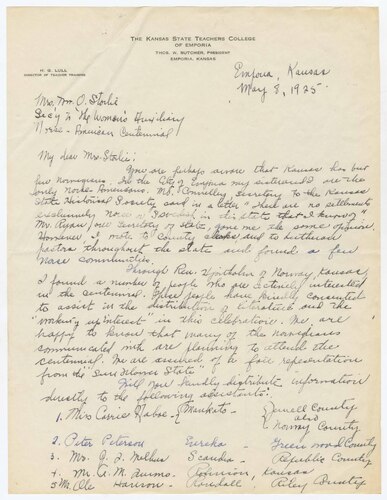 THE KANSAS STATE TEACHERS COLLEGE
OF EMPORIA
THOS. W. BUTCHER, PRESIDENT
EMPORIA, KANSAS
H. G. LULL
DIRECTOR OF TEACHER TRAINING
Emporia, Kansas
May 8, 1925
Mrs. Wm. O. Storlie
Sec'y to the Women's Auxiliary
Norse-American Centennial
My dear Mrs. Storlie:
You are perhaps aware that Kansas has but
few Norwegians. In the City of Emporia my sister and I are the
only Norse Americans. Mr. Connelley, Secretary to the Kansas
State Historical Society said in a letter "There are no settlements
exclusively Norse or Swedish in this state that I know of"
Mr. Ryan, our Secretary of State, gave me the same opinion.
However I wrote to County clerks and to Lutheran
pastors throughout the state and found a few
Norse communities.
Through Rev. of Norway Kansas,
I found a number of people who are actively interested
in the centennial. These people have kindly consented
to assist in the distribution of literature and the
"working up interest" in this celebration. We are
happy to know that many of the Norwegians
communicated with are planning to attend the
centennial. We are assured of a fair representation
from the "Sun Flower State"
Will you kindly distribute information
directly to the following assistants:
1. Miss Carrie - Mankato - Jewell County
also
Norway County
2. Peter Peterson Eureka - Greenwood County
3. Mr. G. J. Scandia - Republic County
4. Mr. A. M. Kansas
5 Mr. Ole - Randall, Riley County